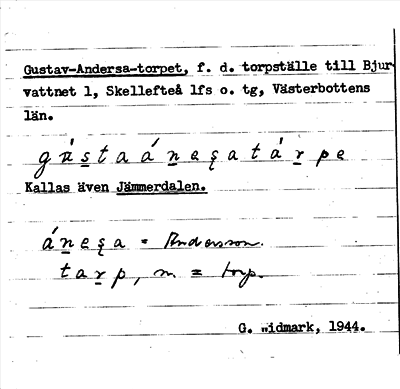 Gustav-Andersa-torpet, f. d. torpställe till Bjur-
vattnet 1, Skellefteå lfs o. tg, Västerbottens
län.
Kallas även Jämmerdalen.
= Andersson.
tarp, m = torp.
G. Widmark, 1944.